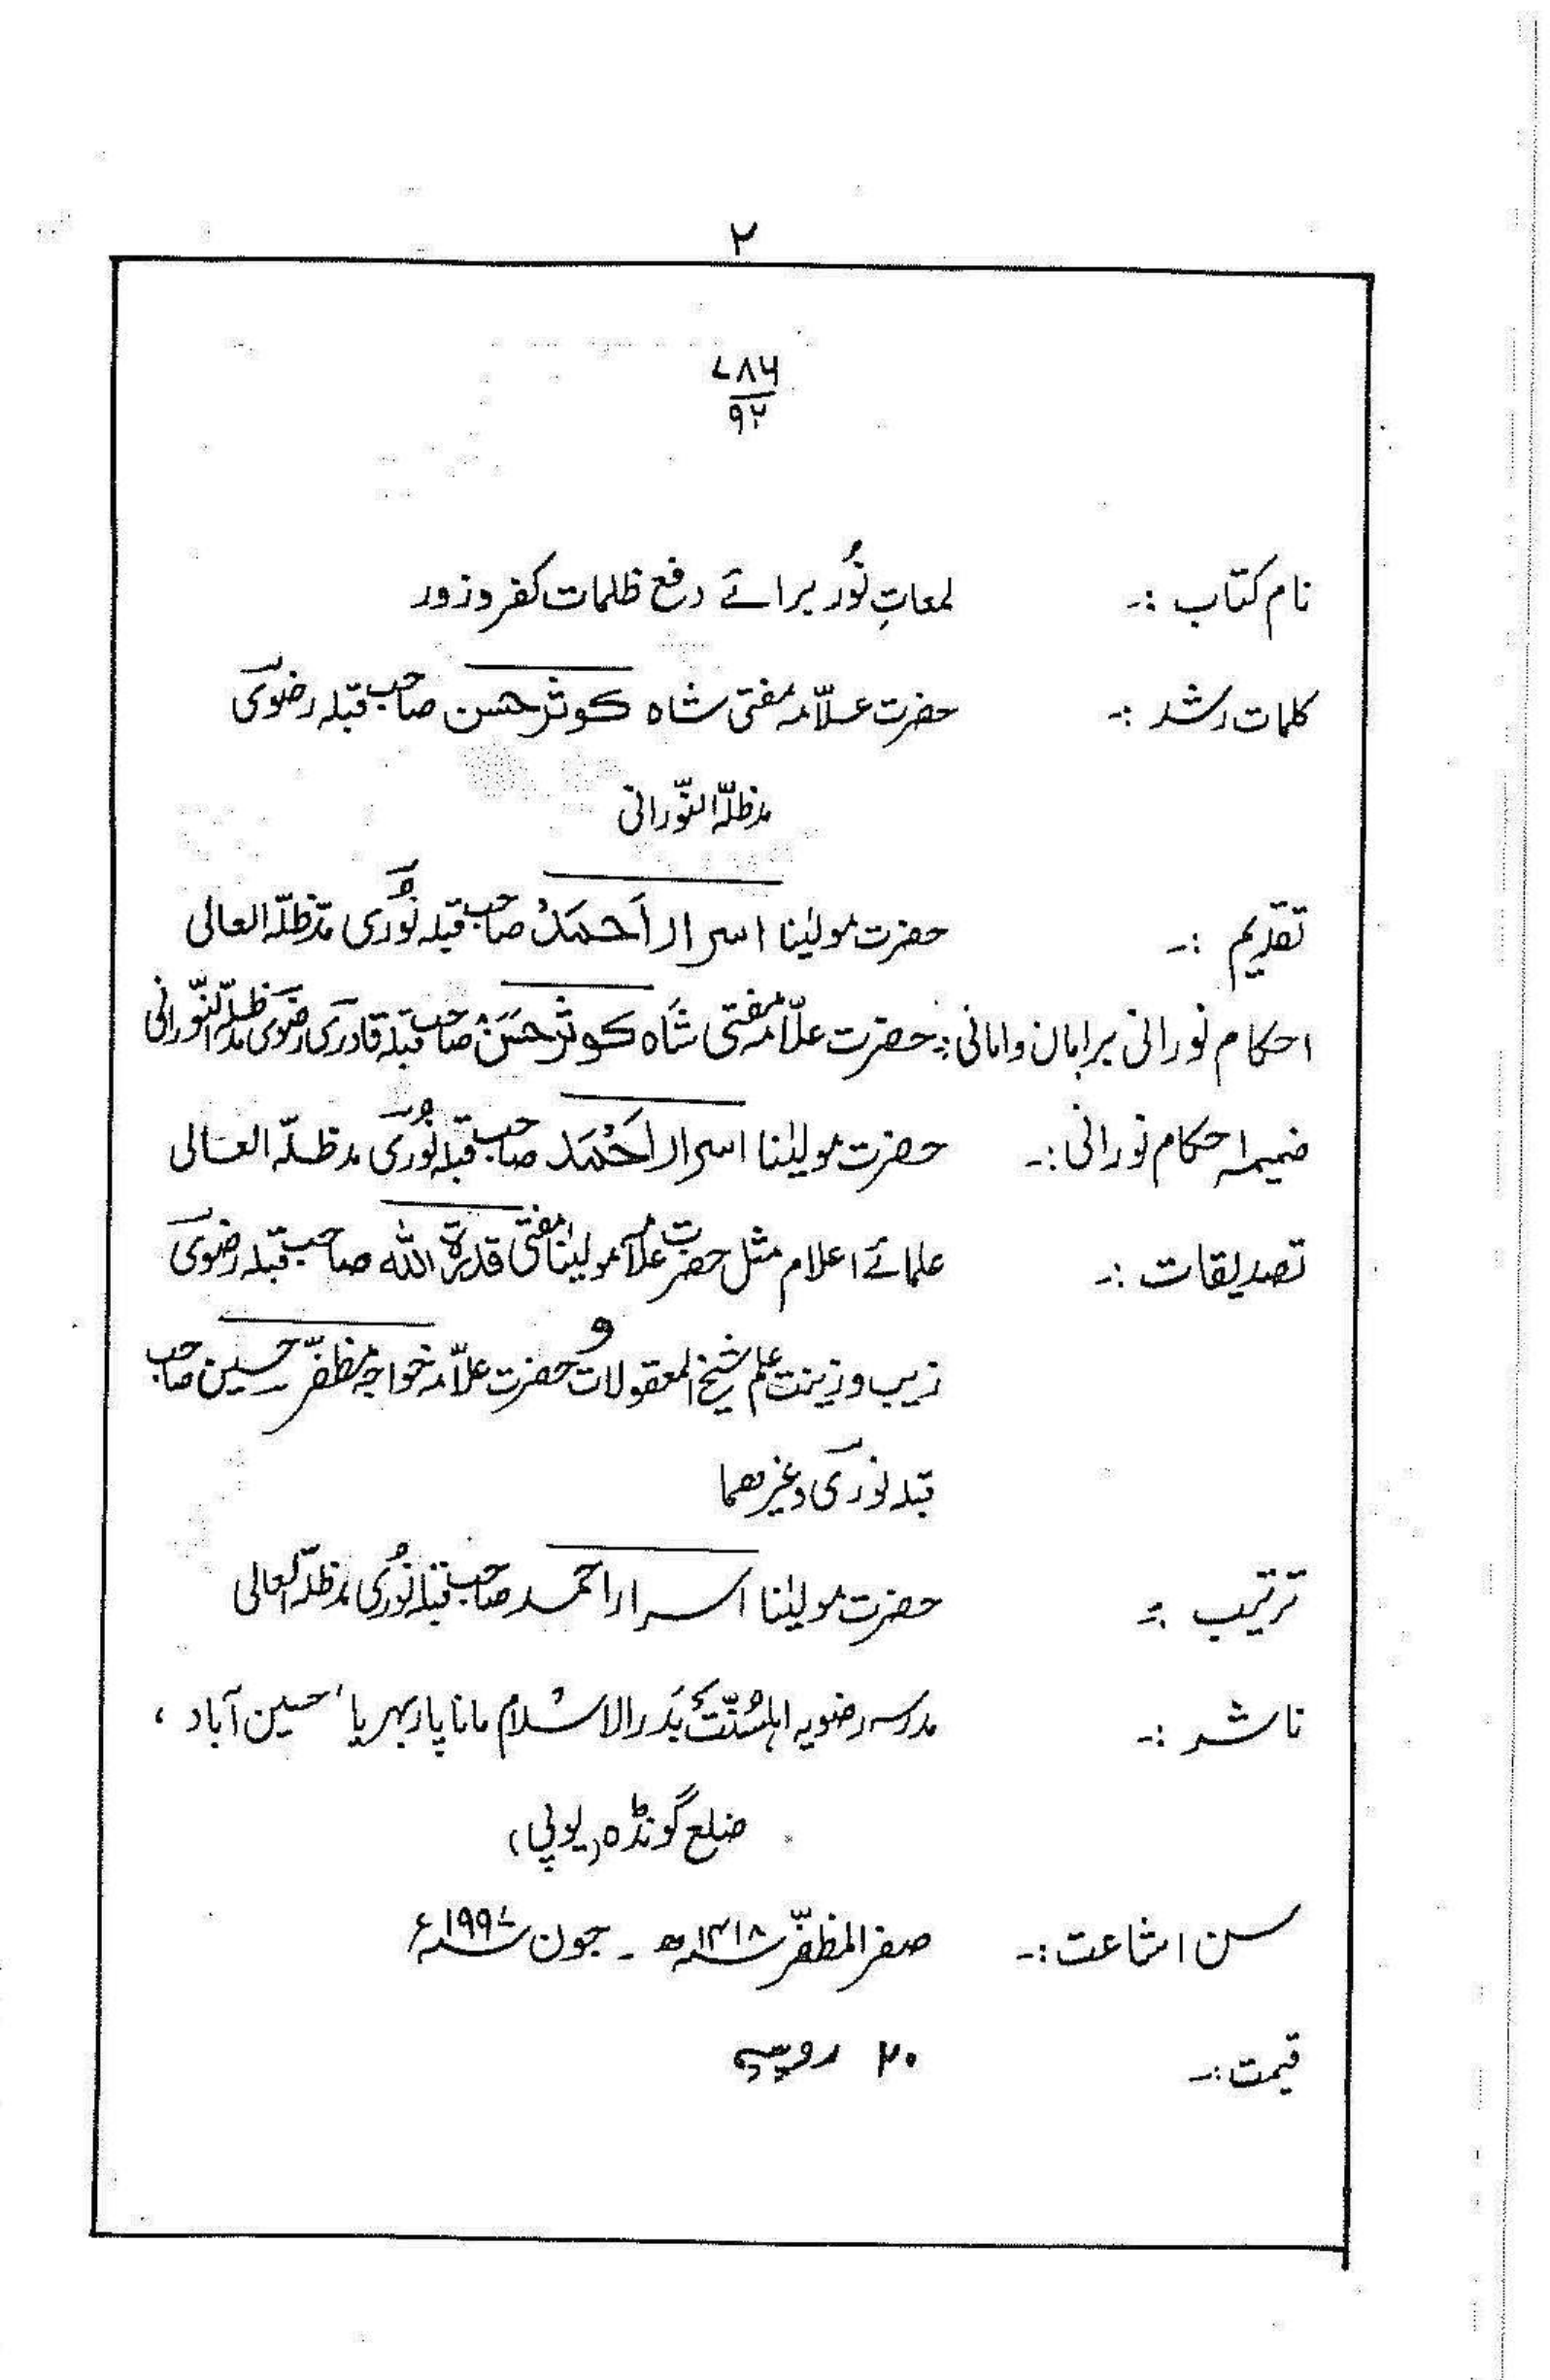 ۲
۷۸۶
۹۲
نام کتاب :۔ لمعاتِ نُور برائے دفع ظلمات کفر و زور
کلمات رشد :۔ حضرت علّامہ مفتی شاہ کوثر حسن صاحب قبلہ رضوی
مدظلہٗ النّورانی
تقدیم :۔ حضرت مولیٰنا اسرار اَحمَدْ صاحب قبلہ نُوری مدّظلہ العالی
احکام نورانی بر ایمان و امانی :۔ حضرت علّامہ مفتی شَاہ کوثر حسَنْ صاحب قبلہ قادری رضوی مدظلہ النّورانی
ضمیمہ احکام نورانی :۔ حضرت مولیٰنا اسرار اَحْمَد صاحب قبلہ نُوری مدظلّہ العالی
تصدیقات :۔ علمائے اعلام مثل حضرت علامہ مولیٰنا مفتی قدرۃ اللہ صاحب قبلہ رضوی
و
زیب و زینت علم شیخ المعقولات حضرت علّامہ خواجہ مظفّر حسین صاحب
قبلہ نوری وغیرھما
ترتیب :۔ حضرت مولیٰنا اسرار احمد صاحب قبلہ نُوری مدظلّہ العالی
ناشر :۔ مدرسہ رضویہ اہلسُنّت بَدرالاسْلام مانا پار بہریا، حسین آباد،
ضلع گونڈہ (یوپی)
سن اشاعت :۔ صفر المظفّر ۱۴۱۸ھ ۔ جون ۱۹۹۷ء
قیمت :۔ ۲۰ روپیے